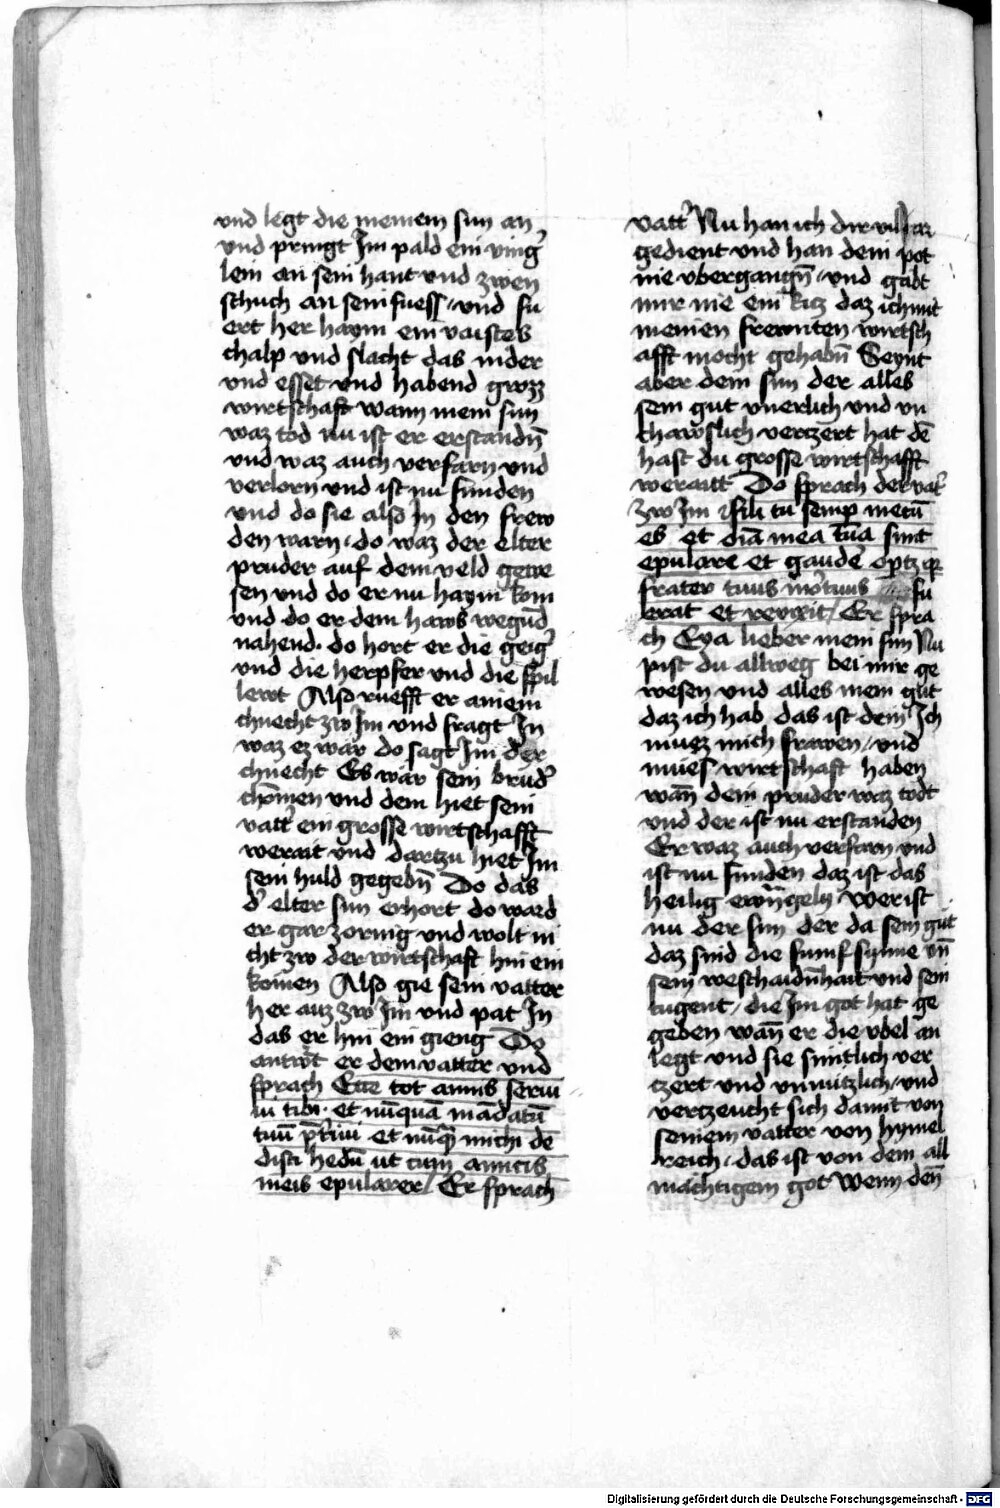 vnd legt die meinem sun an
vnd pringt Im pald ein ving̛
lein an sein hant vnd zwen
schuch an sein fuess / vnd fu
ert her haym ein vaistes
chalp vnd slacht das nider
vnd esset vnd habend grozz
wirtschaft wann mein sun
waz tod nu ist er erstandn̄
vnd waz auch verfarn vnd
verlorn vnd ist nu funden
vnd do sie also In den frew
den warn · do waz der elter
pruder auf dem veld gewe
sen vnd do er nu haym kom
vnd do er dem haws wegūd
nahend · do hort er die geig̛
vnd die herpfer vnd die spil
lewt Also ruefft er ainem
chnecht zw Im vnd fragt In
waz ez wär do sagt Im der
chnecht Es wär sein brud̛
chōmen vnd dem hiet sein
vatt̛ ein grosse wirtschafft
werait vnd dartzu hiet Im
sein huld gegebn̄ Do das
d̛ elter sun erhort do ward
er gar zornig vnd wolt ni
cht zw der wirtschaft hin ein
komen Also gie sein vatter
her auz zw Im vnd pat In
das er hin ein gieng Do
antwꝰt er dem vatter vnd
sprach Ecce tot annis serui
ui tibi · et nūquā mādatū
tuū p̄t̛iui et nūq̄ michi de
disti hedū ut cum amicis
meis epularer / Er sprach
vatt̛ Nu han ich dir vil Jar
gedient vnd han dein pot
nie vbergangn̄ / vnd gabt
mir nie ein kitz daz ich mit
meinen frewnten wirtsch
afft mocht gehabn̄ Seynt
aber dem sun der alles
sein gut vnerlich vnd vn
chawslich vertzert hat dē
hast du grosse wirtschafft
werait Do sprach der vat̛
zw Im fili tu semp mecū
es et oīa mea tua sunt
epulare et gaude̛ opꝛtz qꝛ
frater tuus mơtuus fu
erat et reuixit / Er spra
ch Eya lieber mein sun Nu
pist du allweg bei mir ge
wesen vnd alles mein gut
daz ich hab das ist dein Ich
muez mich frawen / vnd
mues wirtschaft haben
wan̄ dein pruder waz todt
vnd der ist nu erstanden
Er waz auch verfarn vnd
ist nu funden daz ist das
heilig ewn̄gely / wer ist
nu der sun der da sein gut
daz sind die funf synne vn̄
sein weschaidn̄hait vnd sein
tugent / die Im got hat ge
geben wan̄ er die vbel an
legt vnd sie suntlich ver
tzert vnd vnnutzlich / vnd
vertzeucht sich damit von
seinem vatter von hymel
reich / das ist von dem all
mächtigem got wenn den̄
Digitalisierung gefördert durch die Deutsche Forschungsgemeinschaft - DFG